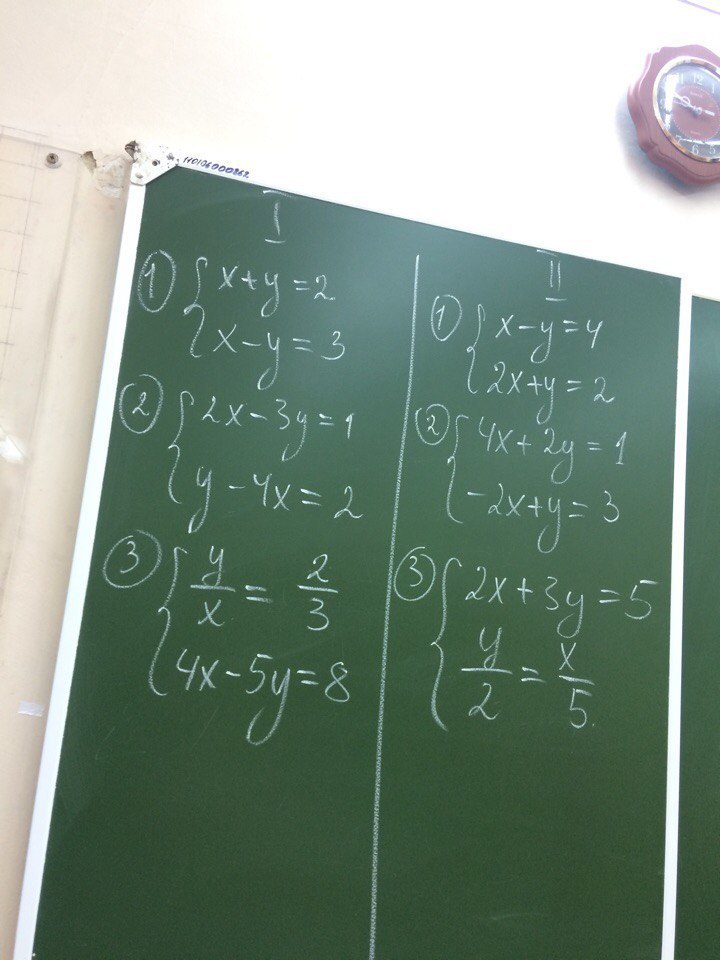 110106000862
I
① { x+y=2
x-y=3
② { 2x-3y=1
y-4x=2
③ { y/x = 2/3
4x-5y=8
II
① { x-y=4
2x+y=2
② { 4x+2y=1
-2x+y=3
③ { 2x+3y=5
y/2 = x/5.